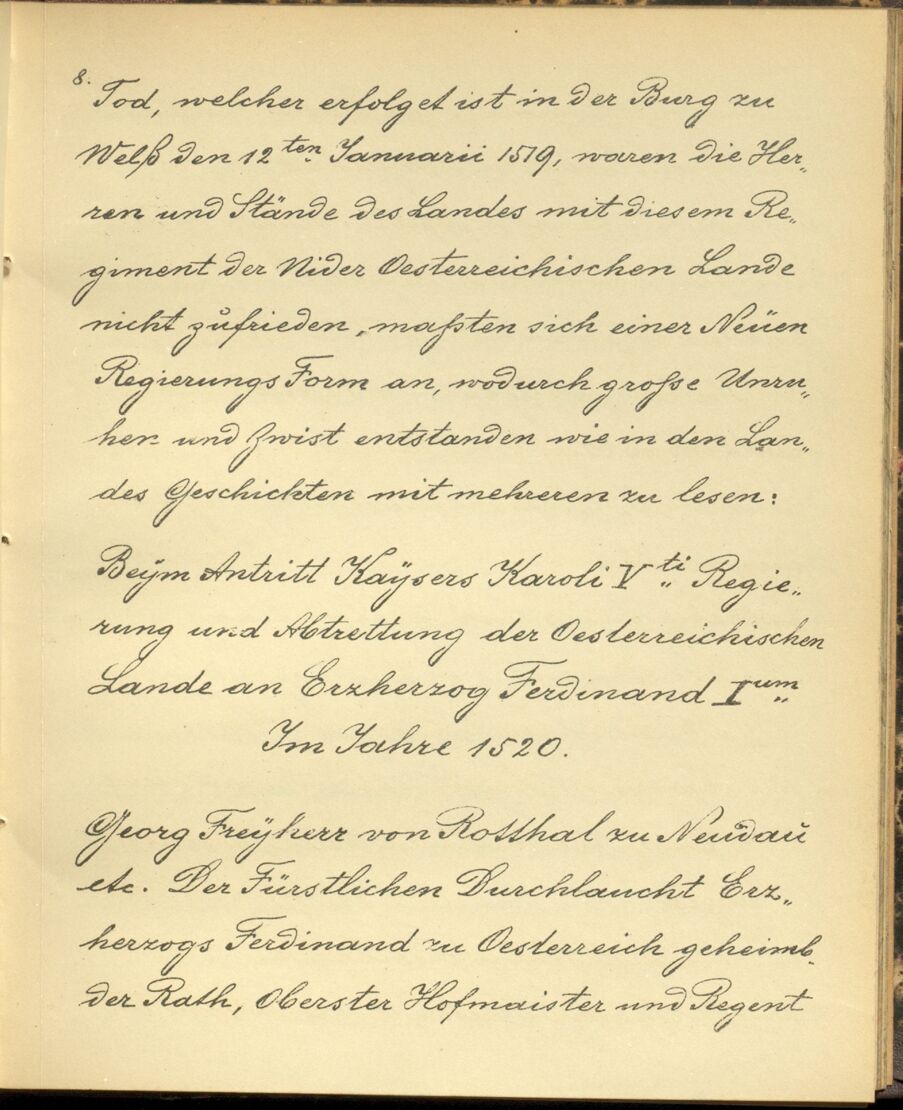 8.
Tod, welcher erfolget ist in der Burg zu
Welß den 12 ten Januarii 1519, waren die Her„
ren und Stände des Landes mit diesem Re„
giment der Nider Oesterreichischen Lande
nicht zŭfrieden, maßten sich einer Neüen
Regierungs Form an, wodurch große Unru„
hen und Zwist entstanden wie in den Lan„
des Geschichten mit mehreren zu lesen:
Beÿm Antritt Kaÿsers Karoli V ti„ Regie„
rung und Abtrettung der Oesterreichischen
Lande an Erzherzog Ferdinand I um„
Im Jahre 1520.
Georg Freÿherr von Rotthal zu Neudaŭ
etc. Der Fürstlichen Durchlaucht Erz„
herzogs Ferdinand zu Oesterreich geheimb„
der Rath, Oberster Hofmaister und Regent